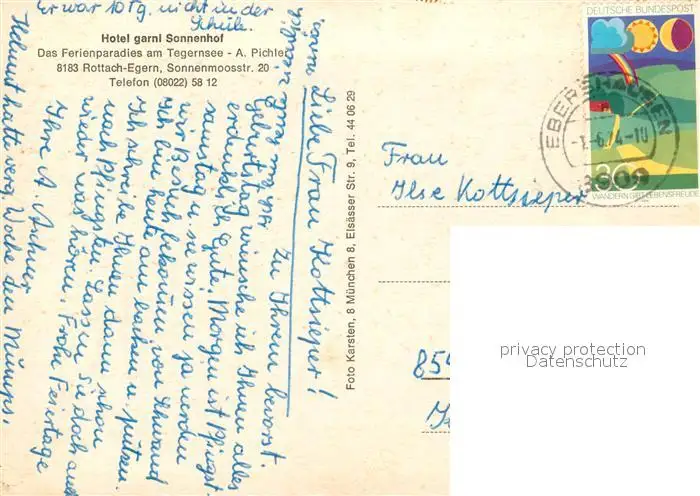 Er war 10 Tg. nicht in der
Schule.
Hotel garni Sonnenhof
Das Ferienparadies am Tegernsee - A. Pichler
8183 Rottach-Egern, Sonnenmoosstr. 20
Telefon (08022) 58 12
Liebe Frau Kottsieper!
Zu Ihrem bevorst.
Geburtstag wünsche ich Ihnen alles
erdenkl. Gute. Morgen ist Pfingst
samstag u. wir werden
wir Besuch bekommen von
Ich bin heute am backen u. putzen.
Ich schreibe Ihnen dann schon
nach Pfingsten. Lassen Sie doch auch
wieder was hören. Frohe Feiertage
Ihre A.
Helmut hatte verg. Woche den Mumps.
Foto Karsten, 8 München 8, Elsässer Str. 9, Tel. 44 06 29
DEUTSCHE BUNDESPOST
30
WANDERN GIBT LEBENSFREUDE
-1.6.74-10
Frau
Ilse Kottsieper
privacy protection
Datenschutz